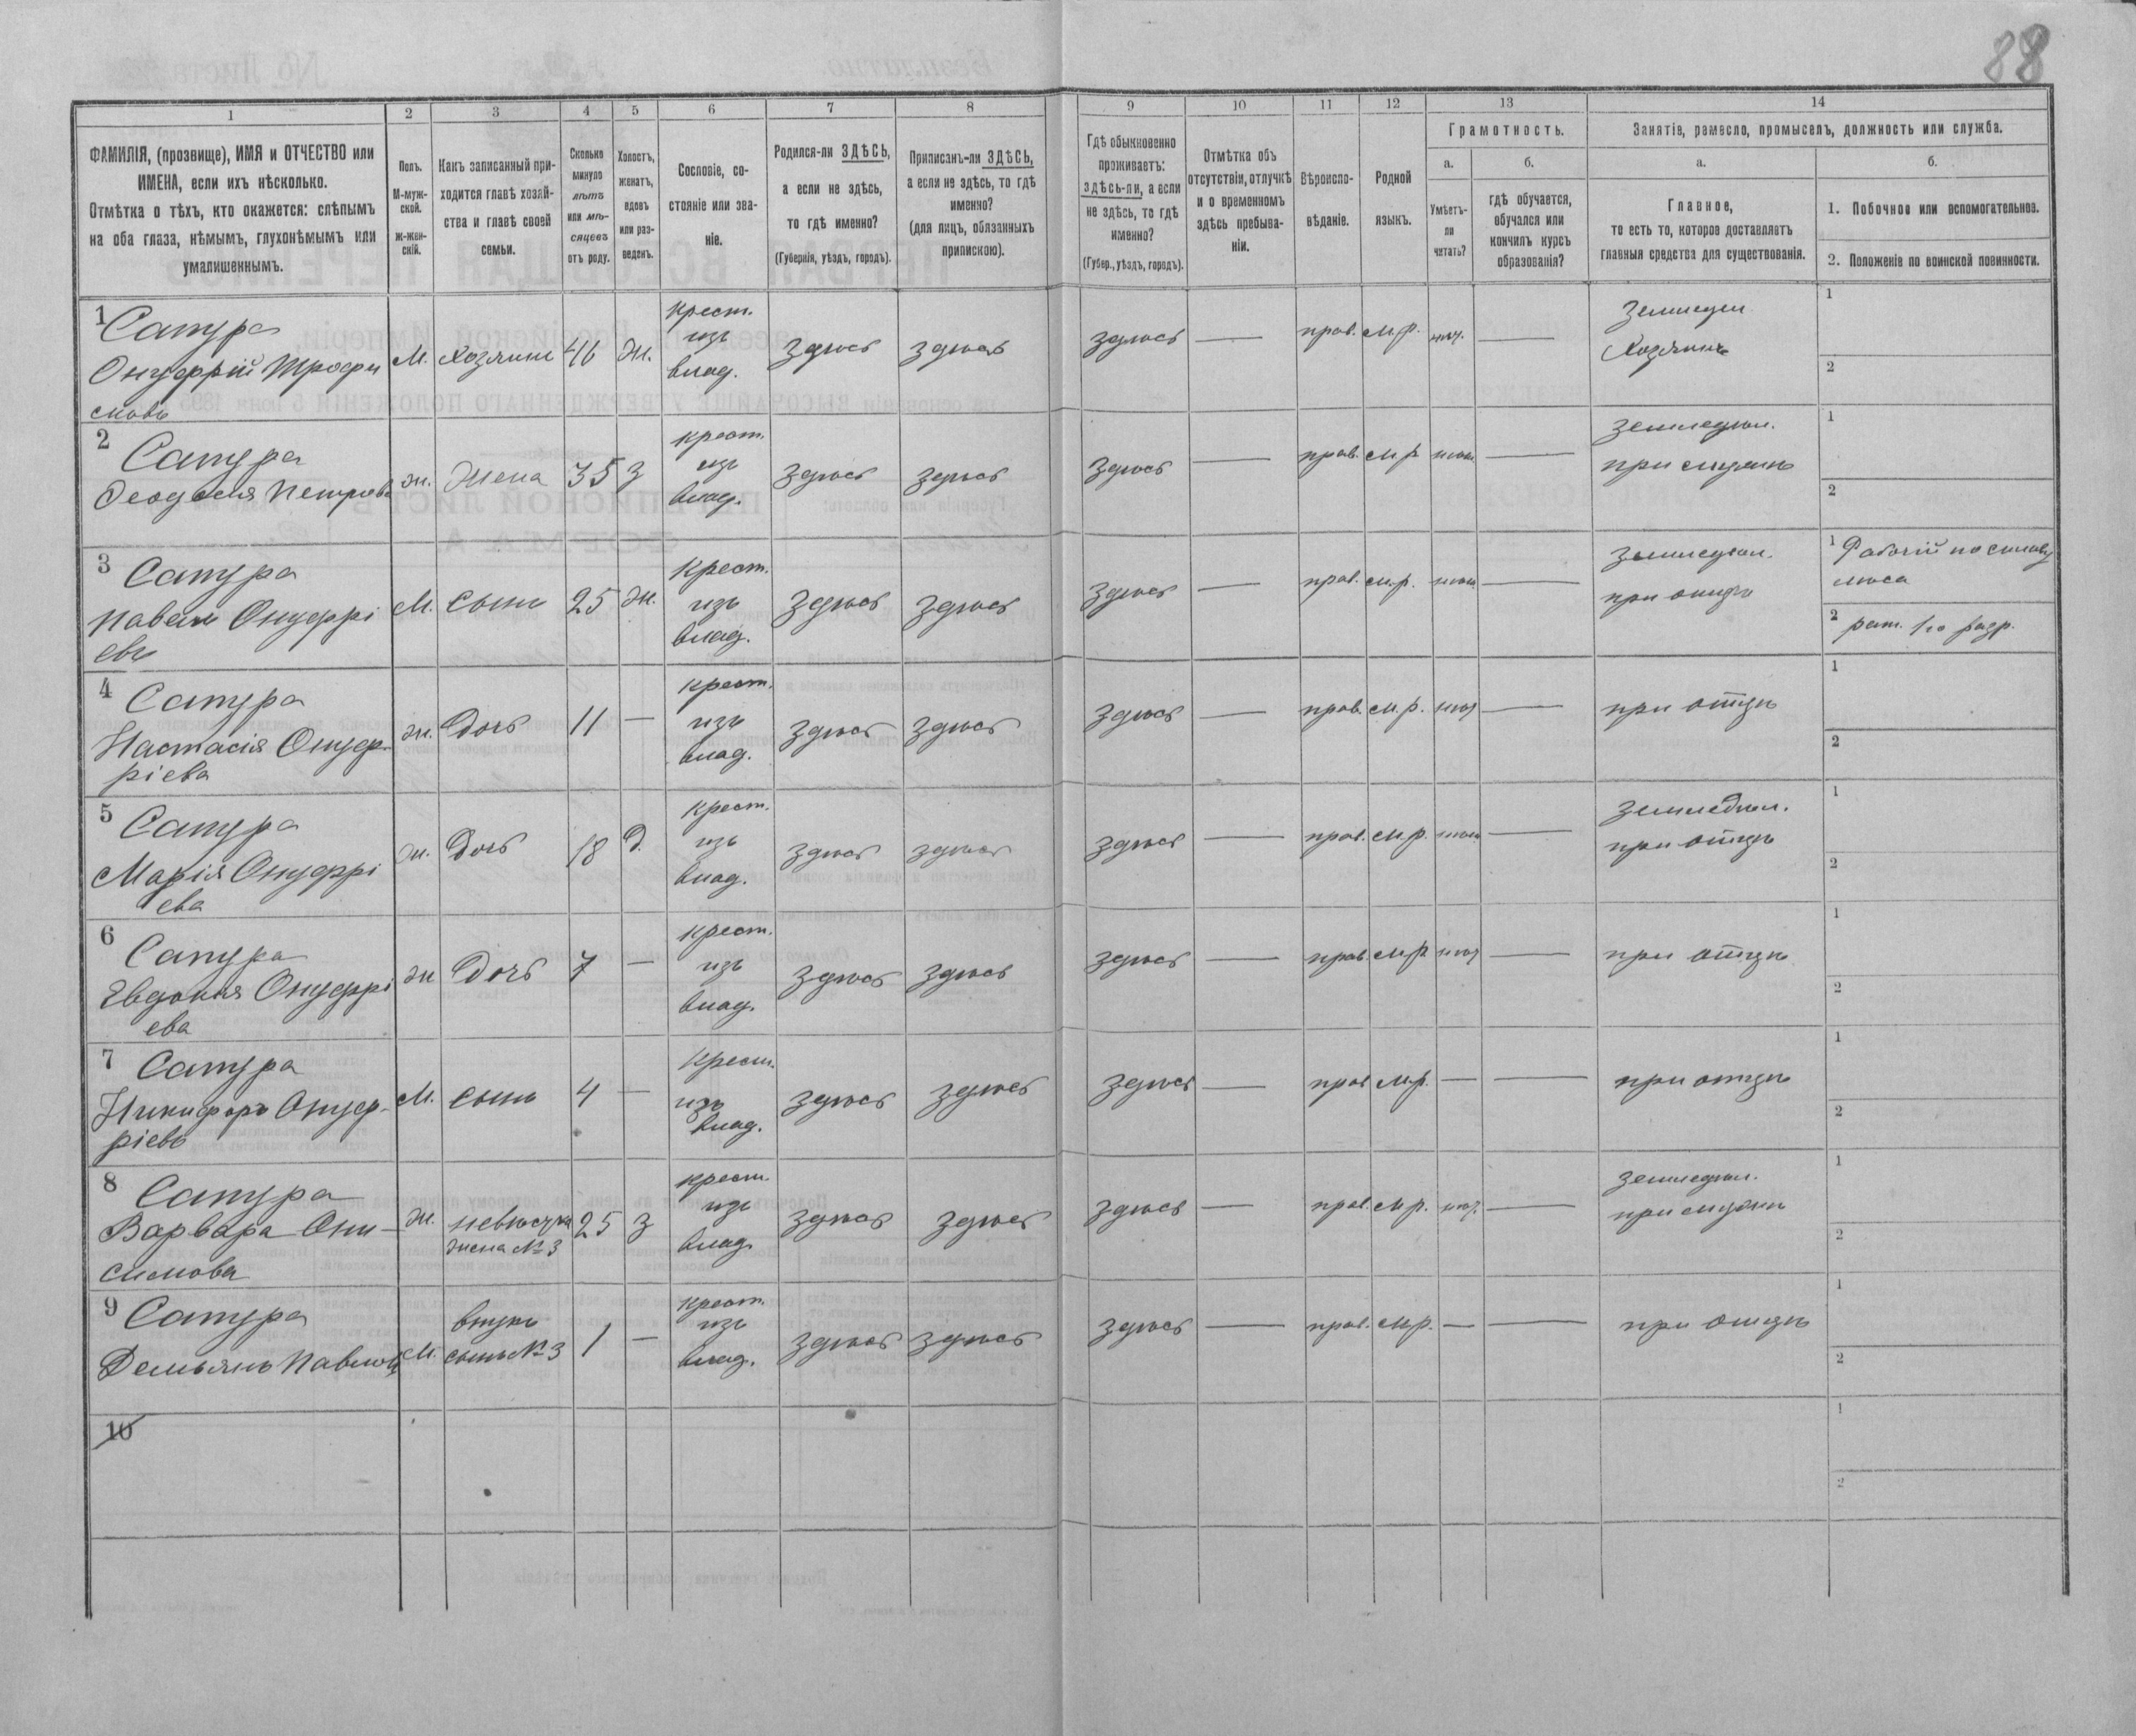 88
1
2
3
4
5
6
7
8
9
10
11
12
13
14
ФАМИЛІЯ, (прозвище), ИМЯ и ОТЧЕСТВО или
ИМЕНА, если ихъ нѣсколько.
Отмѣтка о тѣхъ, кто окажется: слѣпымъ
на оба глаза, нѣмымъ, глухонѣмымъ или
умалишеннымъ.
Полъ.
М-муж-
ской.
Ж-жен-
скій.
Какъ записанный при-
ходится главѣ хозяй-
ства и главѣ своей
семьи.
Сколько
минуло
лѣтъ
или мѣ-
сяцевъ
отъ роду.
Холостъ,
женатъ,
вдовъ
или раз-
веденъ.
Сословіе, со-
стояніе или зва-
ніе.
Родился-ли ЗДѢСЬ,
а если не здѣсь,
то гдѣ именно?
(Губернія, уѣздъ, городъ).
Приписанъ-ли ЗДѢСЬ,
а если не здѣсь, то гдѣ
именно?
(для лицъ, обязанныхъ
припискою).
Гдѣ обыкновенно
проживаетъ:
здѣсь-ли, а если
не здѣсь, то гдѣ
именно?
(Губер., уѣздъ, городъ).
Отмѣтка объ
отсутствіи, отлучкѣ
и о временномъ
здѣсь пребыва-
ніи.
Вѣроиспо-
вѣданіе.
Родной
языкъ.
Грамотность.
а.
Умѣетъ-
ли
читать?
б.
гдѣ обучается,
обучался или
кончилъ курсъ
образованія?
Занятіе, ремесло, промыселъ, должность или служба.
а.
Главное,
то есть то, которое доставляетъ
главныя средства для существованія.
б.
1. Побочное или вспомогательное.
2. Положеніе по воинской повинности.
1 Сапура
Онуфрій Трофи
мовъ
М. Хозяинъ 46 Ж. крест. изъ влад. здѣсь здѣсь здѣсь — прав. м.р. нѣт. — Земледел Хозяинъ
1
2
2 Сапура
Феодосія Петрова
ж. Жена 35 З крест. изъ влад. здѣсь здѣсь здѣсь — прав. м.р нѣт — земледѣл. при мужѣ
1
2
3 Сапура
Павелъ Онуфрі
евъ
М. сынъ 25 Ж. Крест. изъ влад. здѣсь здѣсь здѣсь — прав. м.р. нѣт — земледѣл. при отцѣ
1 Рабочій по сплаву
лѣса
2 рат. 1го разр.
4 Сапура
Настасія Онуф-
ріева
ж. Дочь 11 — крест. изъ влад. здѣсь здѣсь здѣсь — прав. м.р. нѣт — при отцѣ
1
2
5 Сапура
Марія Онуфрі
ева
ж. Дочь 18 Д. крест. изъ влад. здѣсь здѣсь здѣсь — прав. м.р. нѣт — земледѣл. при отцѣ
1
2
6 Сапура
Евдокія Онуфрі
ева
ж Дочь 7 — крест. изъ влад. здѣсь здѣсь здѣсь — прав. м.р нѣт — при отцѣ
1
2
7 Сапура
Никифоръ Онуф-
ріевъ
М. сынъ 4 — Крест. изъ влад. здѣсь здѣсь здѣсь — прав м.р. — — при отцѣ
1
2
8 Сапура
Варвара Они-
симова
Ж. невѣстка жена №3 25 З крест. изъ влад. здѣсь здѣсь здѣсь — прав. м.р. нѣт. — земледѣл. при мужѣ
1
2
9 Сапура
Демьянъ Павловъ
М. внукъ сынъ №3 1 — крест. изъ влад. здѣсь здѣсь здѣсь — прав. м.р. — — при отцѣ
1
2
10
1
2